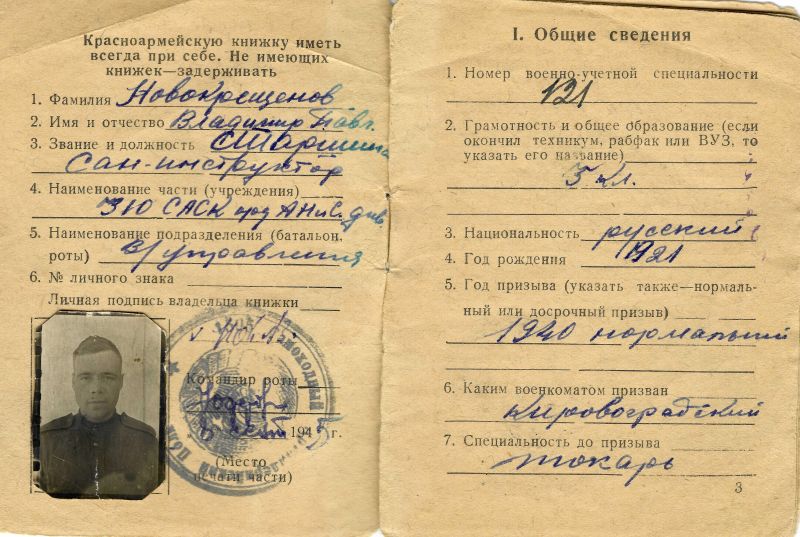 Красноармейскую книжку иметь
всегда при себе. Не имеющих
книжек—задерживать
1. Фамилия Новокрещенов
2. Имя и отчество Владимир Павл.
3. Звание и должность Старшина
Сан-инструктор
4. Наименование части (учреждения)
САСК
5. Наименование подразделения (батальон,
роты) управления
6. № личного знака
Личная подпись владельца книжки
Командир роты
194 г.
(Место
печати части)
I. Общие сведения
1. Номер военно-учетной специальности
121
2. Грамотность и общее образование (если
окончил техникум, рабфак или ВУЗ, то
указать его название)
кл.
3. Национальность русский
4. Год рождения 1921
5. Год призыва (указать также—нормаль-
ный или досрочный призыв)
1940 нормальный
6. Каким военкоматом призван
Кировоградский
7. Специальность до призыва
токарь
3